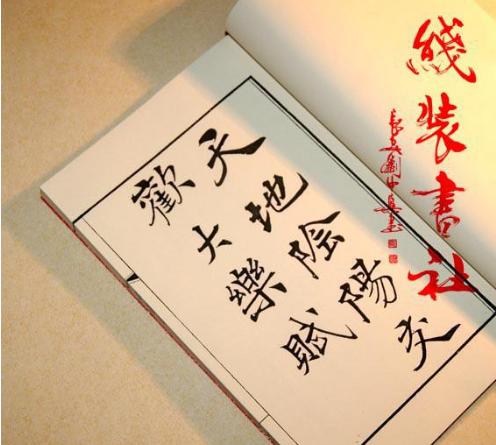 天地陰陽交
歡大樂賦
綫装書社